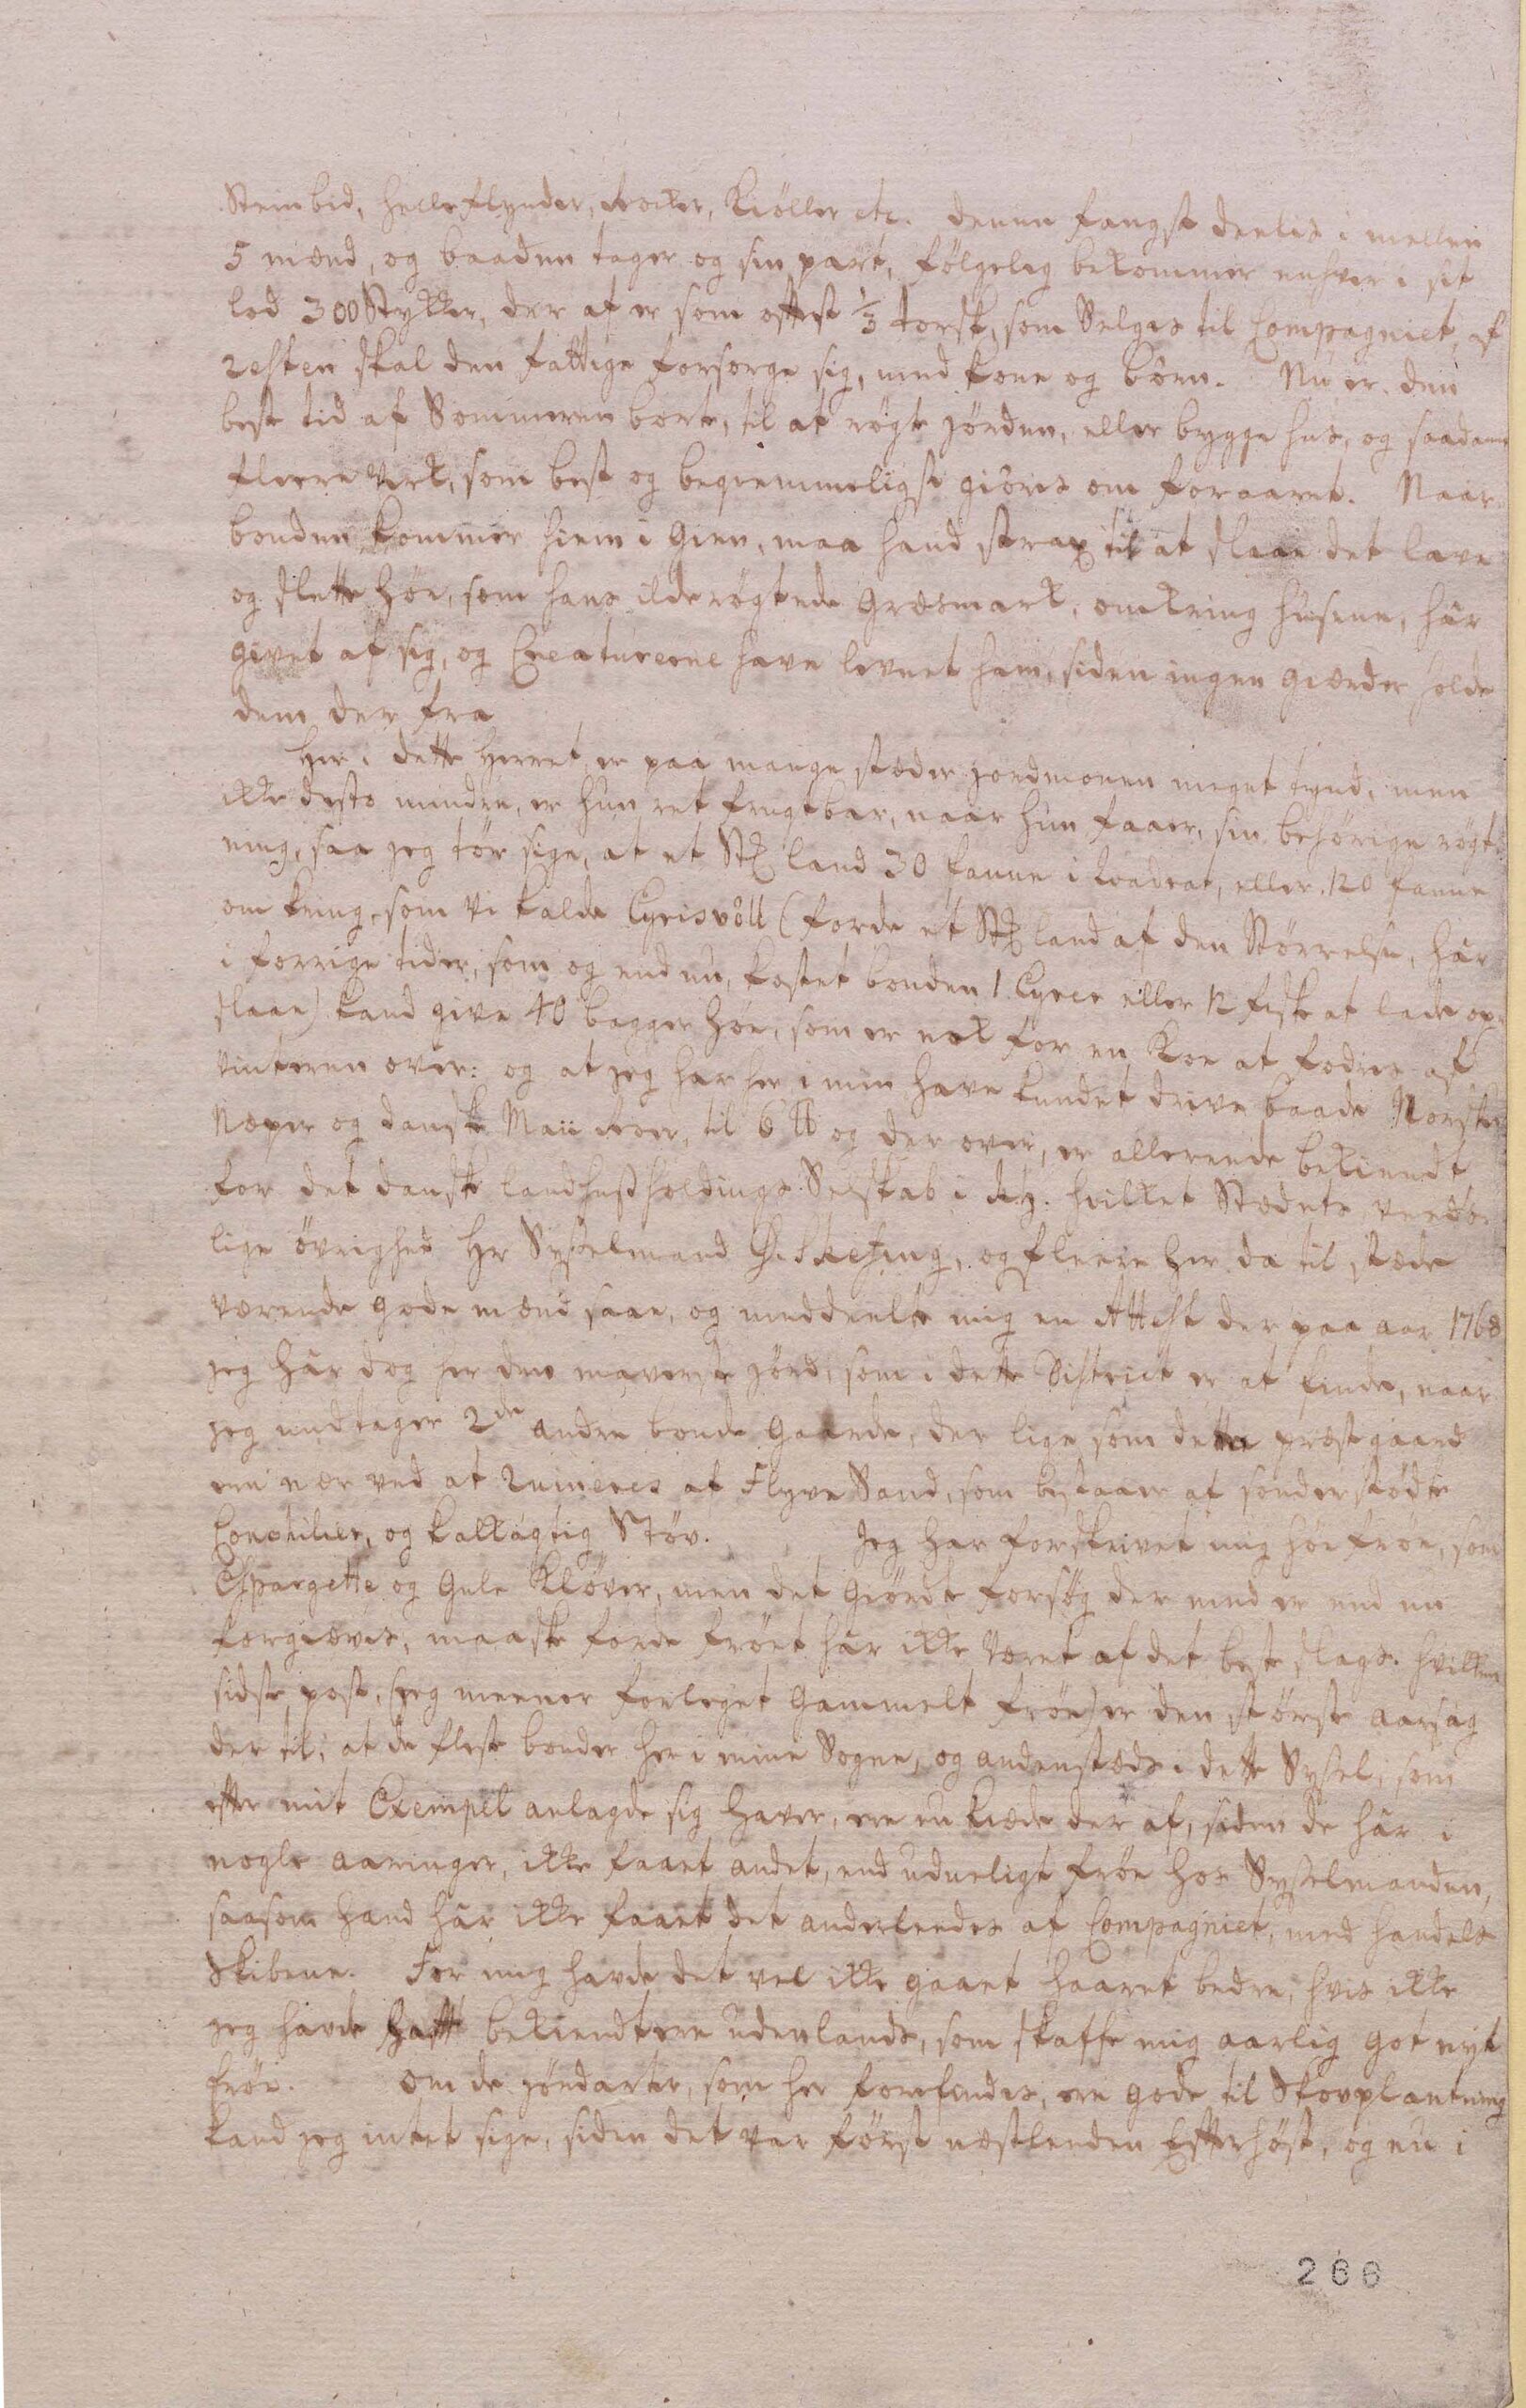 Steinbid, Helleflynder, Rocker, Kiøller etc. denne fangst deelis i mellen
5 mænd, og baaden tager og sin part, følgelig bekommer enhver i sit
lod 300 Stykker, der af er som oftest 1/3 torsk, som Selges til Compagniet, af
resten skal den fattige forsorge sig, med kone og børn. Nu er den
beste tid af Sommeren borte, til at røgte jorden, eller bygge hus, og saadant
fleere verk, som best og beqvemmeligst giøres om foraaret. Naar
bonden kommer hiem i Gien, maa hand strax til at slaae det lave
og slette høe, som hans ilde røgtede Græsmark, omkring husene, har
givet af sig, og Creaturerne have levnet ham, siden ingen giærder holde
dem der fra
Her i dette Herret er paa mange stæder jordmonen meget tynd, men
ikke desto mindre, er hun ret frugtbar, naar hun faaer, sin behørige røgt
ning, saa jeg tør sige, at et Stk land 30 favne i kvadrat, eller 120 favne
om kring, som vi kalde Eyrisvöll (fordi et Stk land af den Størrelse, har
i forrige tider, som og end nu, kostet bonden 1 Eyrer eller 12 fiske at lade op
slaae) kand give 40 bagger høe, som er nok for en Koe at fodres af
vinteren over: og at jeg har her i min have kundet drive baade Norske
Næper og danske Maii Roer, til 6 ℔ og der over, er allereede bekiendt
for det danske landhusholdings Selskab i khv. hvilket Stædets verds
lige øvrighed Hr Sysselmand Ø. Skefing, og fleere her da til stæde
værende gode mænd saae, og meddeelte mig en Attest der paa aar 1768
jeg har dog her den maverste jord, som i dette District er at finde, naar
jeg undtager 2de andre bonde Gaarde, der lige som dette præstgaard
ere nær ved at Ruineres af Flyve Sand, som bestaaer af sønderstødte
Conchilier, og kalkagtig Støv. Jeg har forskrivet mig høe frøe, som
Esparzette og Gule Kløver, men det Giørdte forsøg der med er end nu
forgiæves, maaske fordi frøet har ikke været af det beste slags. hvilken
sidste post, (jeg meener forleget Gammelt frøe) er den største aarsag
der til, at de fleste bonder her i mine Sogne, og andenstæds i dette Syssel, som
efter mit Exempel anlagde sig Haver, ere nu kiæde der af, siden de har i
nogle aaringer, ikke faaet andet, end udueligt frøe hos Sysselmanden,
saasom hand har ikke faaet det anderleedes af Compagniet, med handels
Skibene. For mig havde det vel ikke gaaet haaret bedre, hvis ikke
jeg havde haft bekiendtere udenlands, som skaffe mig aarlig got nyt
frøe. Om de jordarter, som her forefindes, ere gode til Skovplantning
kand jeg intet sige, siden det var først næstleeden Efterhøst, og nu i
266